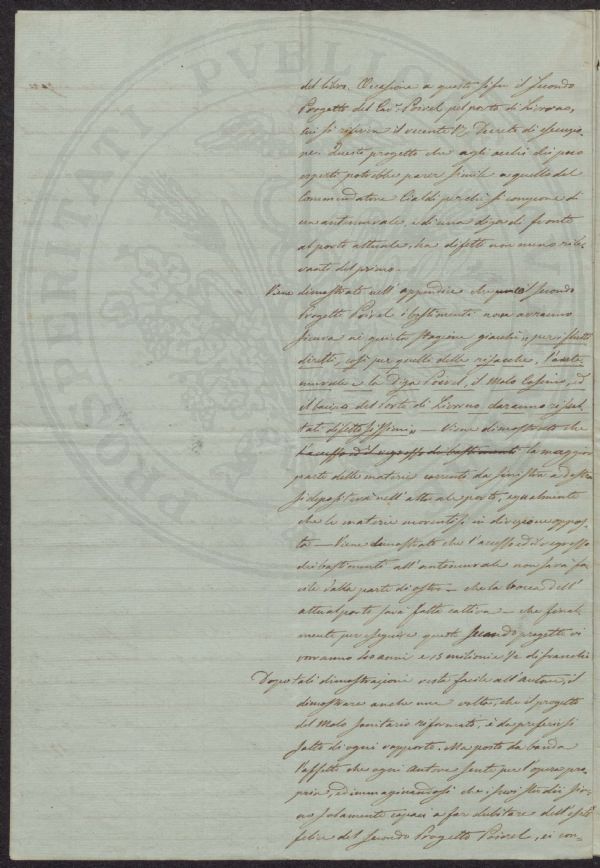 del libro. Occasione a questo si fu il secondo
Progetto del Cav.r Poirel pel porto di Livorno,
cui si riferiva il recente Decreto di esecuzio
ne. Questo progetto che agli occhi dei poco
esperti potrebbe parer simile a quello del
Commendatore Cialdi perché si compone di
un antemurale, e di una diga di fronte
al porto attuale, ha difetti non meno rile
vanti del primo.
Viene dimostrato nell'appendice che il secondo
Progetto Poirel i bastimenti non avranno
sicura
stagione giacché "per i flutti
diretti, così per quelli delle risacche, l'ante
murale e la Diga Poirel, il Molo Cosimo, ed
il bacino del Porto di Livorno daranno risul
tati difettosissimi" — Viene dimostrato che
l'accesso ed il regresso dei bastimenti la maggior
parte delle materie correnti da sinistra a destra
si depositerà nell'attuale porto, egualmente
che le materie moventisi in direzione oppos
ta — Viene dimostrato che l'accesso ed il regresso
dei bastimenti all'antemurale non sarà fa
cile dalla parte di ostro — che la bocca dell'
attual porto sarà fatta cattiva — che final
mente per eseguire questo secondo progetto vi
vorranno anni e 15 milioni e 1/2 di franchi
Dopo tali dimostrazioni resta facile all'autore, il
dimostrare anche una volta, che il progetto
del Molo Sanitario riformato, è da preferirsi
sotto di ogni rapporto. Ma posto da banda
l'affetto che ogni Autore sente per l'opera pro
pria, ed immaginandosi che i suoi studii sia
no solamente capaci a far dubitare dell'esito
felice del secondo Progetto Poirel, ei con=